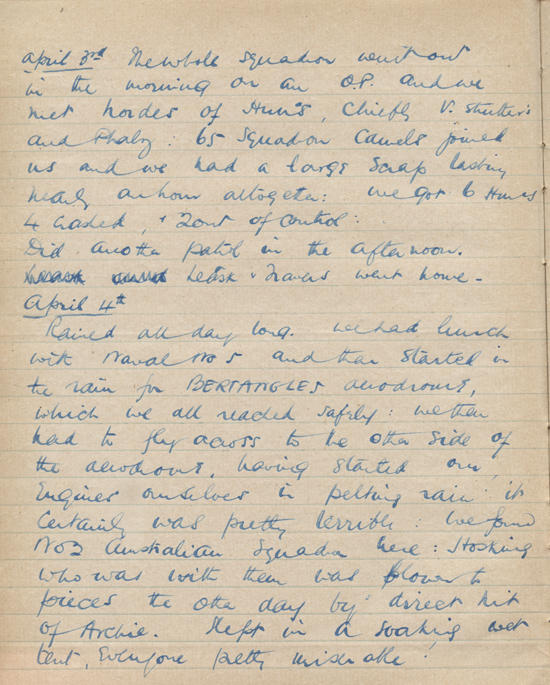 April 3rd The whole squadron went out
in the morning on an O.P. and we
met hordes of Huns, Chiefly V. Strutters
and Phalz: 65 Squadron Camels joined
us and we had a large Scrap lasting
nearly an hour altogether: we got 6 Huns
4 crashed, & 2 out of control:
Did another patrol in the afternoon.
Leask & Travers went home -
April 4th
Rained all day long. we had lunch
with Naval No 5 and then started in
the rain for BERTANGLES aerodrome,
which we all reached safely: we then
had to fly across to the other side of
the aerodrome, having started our
Engines ourselves in pelting rain it
Certainly was pretty terrible: we found
No 3 Australian Squadron here: Hosking
who was with them was blown to
pieces the other day by direct hit
of Archie. Slept in a soaking wet
tent, Everyone pretty miserable!